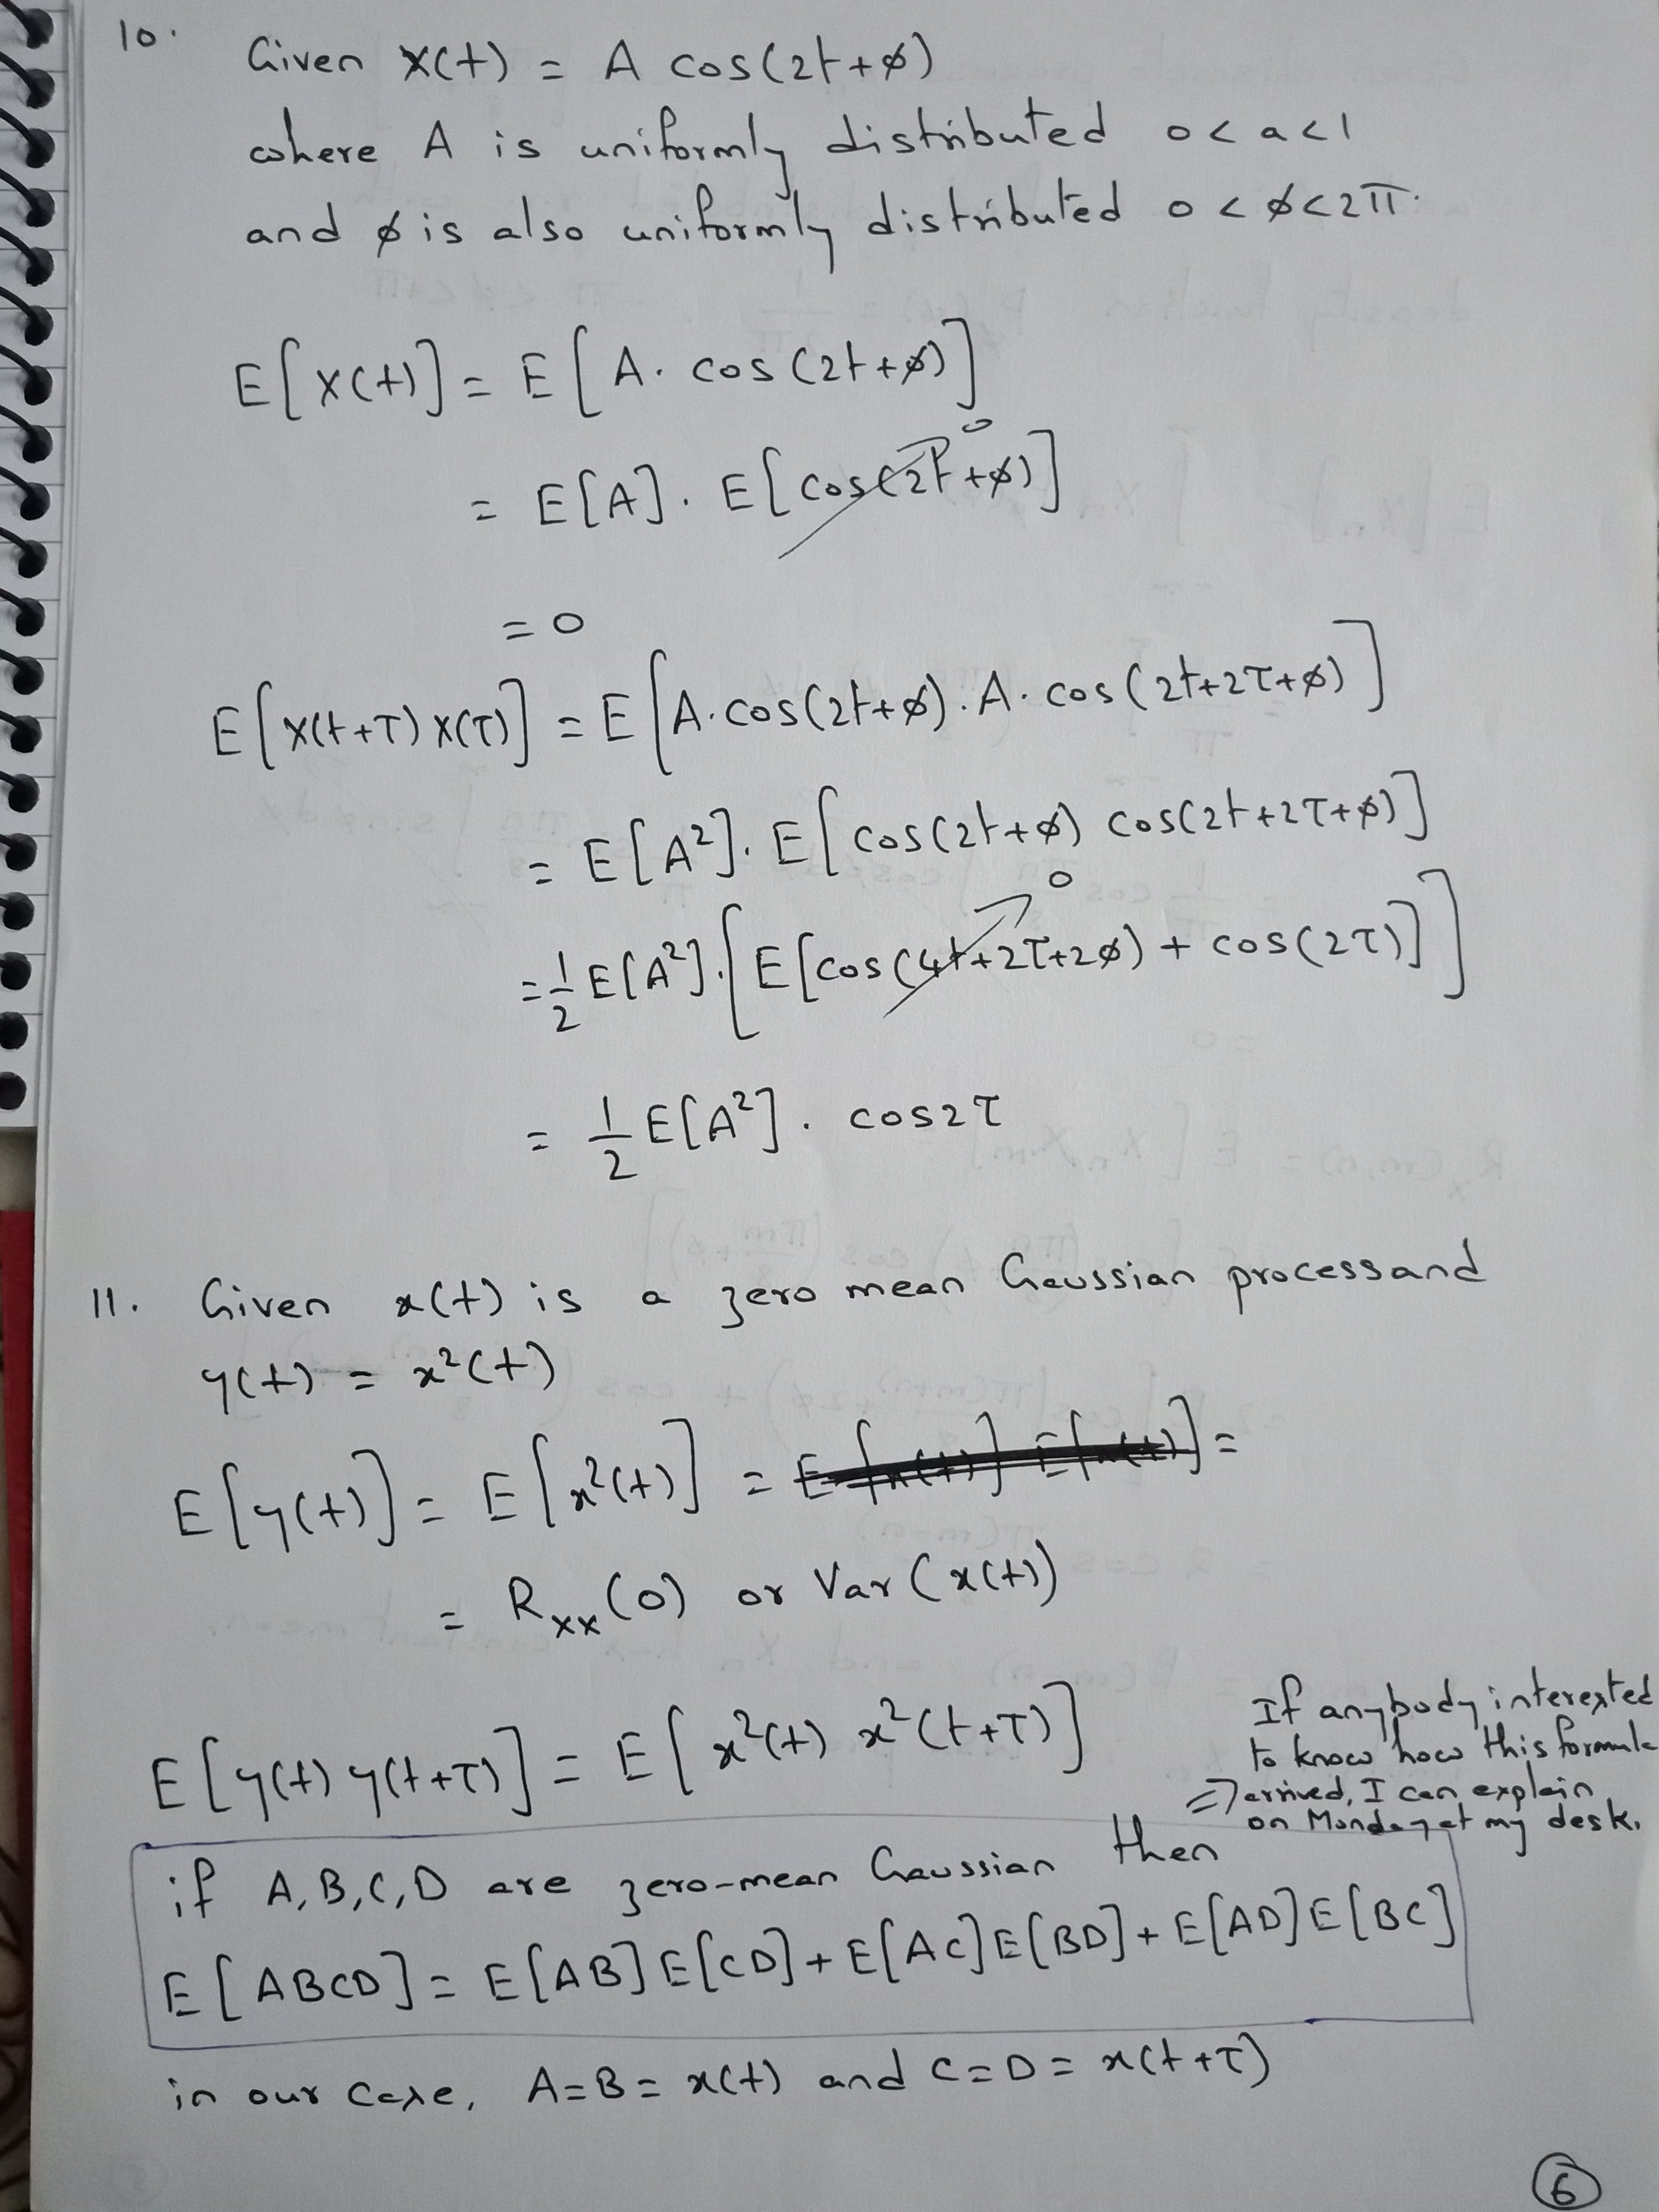 10. Given X(t) = A cos(2t+φ)
where A is uniformly distributed 0<a<1
and φ is also uniformly distributed 0<φ<2π.
E[X(t)] = E[A. cos(2t+φ)]
= E[A]. E[cos(2t+φ)] 0
= 0
E[X(t+τ) X(τ)] = E[A.cos(2t+φ). A. cos(2t+2τ+φ)]
= E[A²]. E[cos(2t+φ) cos(2t+2τ+φ)]
= 1/2 E[A²]. [E[cos(4t+2τ+2φ) + cos(2τ)]] 0
= 1/2 E[A²]. cos2τ
11. Given x(t) is a zero mean Gaussian process and
y(t) = x²(t)
E[y(t)] = E[x²(t)] = E[x(t)] E[x(t)] =
= Rxx(0) or Var(x(t))
E[y(t) y(t+τ)] = E[x²(t) x²(t+τ)]
If anybody interested
to know how this formula
⇒ arrived, I can explain
on Monday at my desk.
if A,B,C,D are zero-mean Gaussian then
E[ABCD] = E[AB]E[CD] + E[AC]E[BD] + E[AD]E[BC]
in our case, A=B= x(t) and C=D= x(t+τ)
6